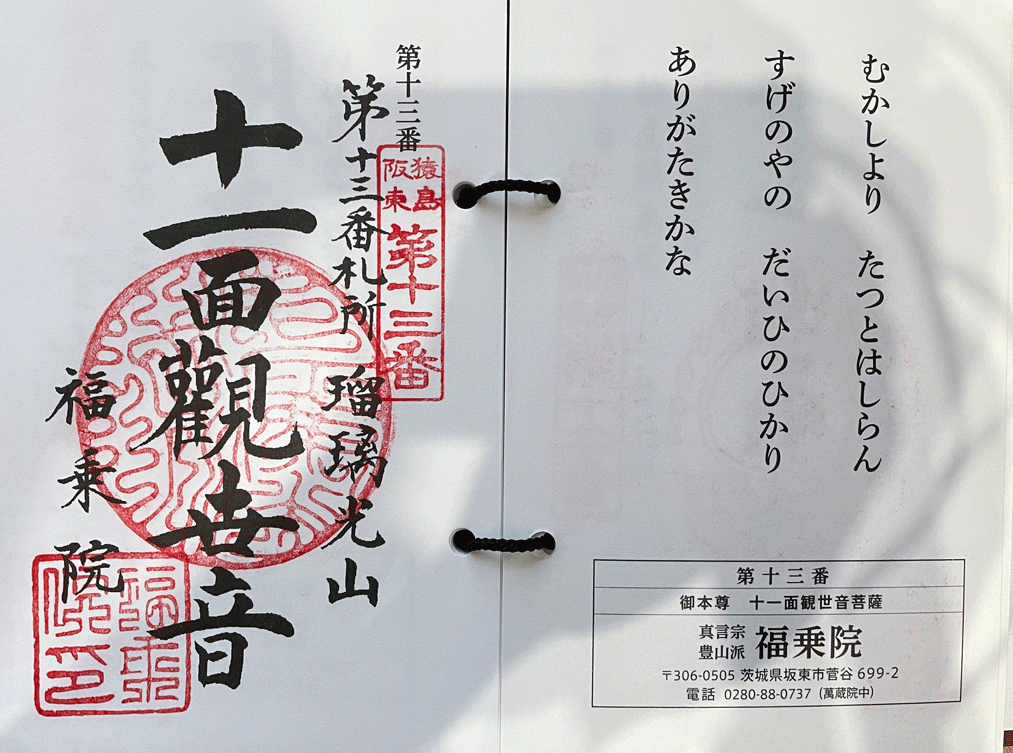 むかしより　たつとはしらん
すげのやの　だいひのひかり
ありがたきかな
第十三番
御本尊　十一面観世音菩薩
真言宗
豊山派
福乗院
〒306-0505 茨城県坂東市菅谷 699-2
電話 0280-88-0737 (萬蔵院中)
第十三番
猿島
阪東
第十三番
第十三番札所 瑠璃光山
十一面觀世音
福乗院
福乗
院印